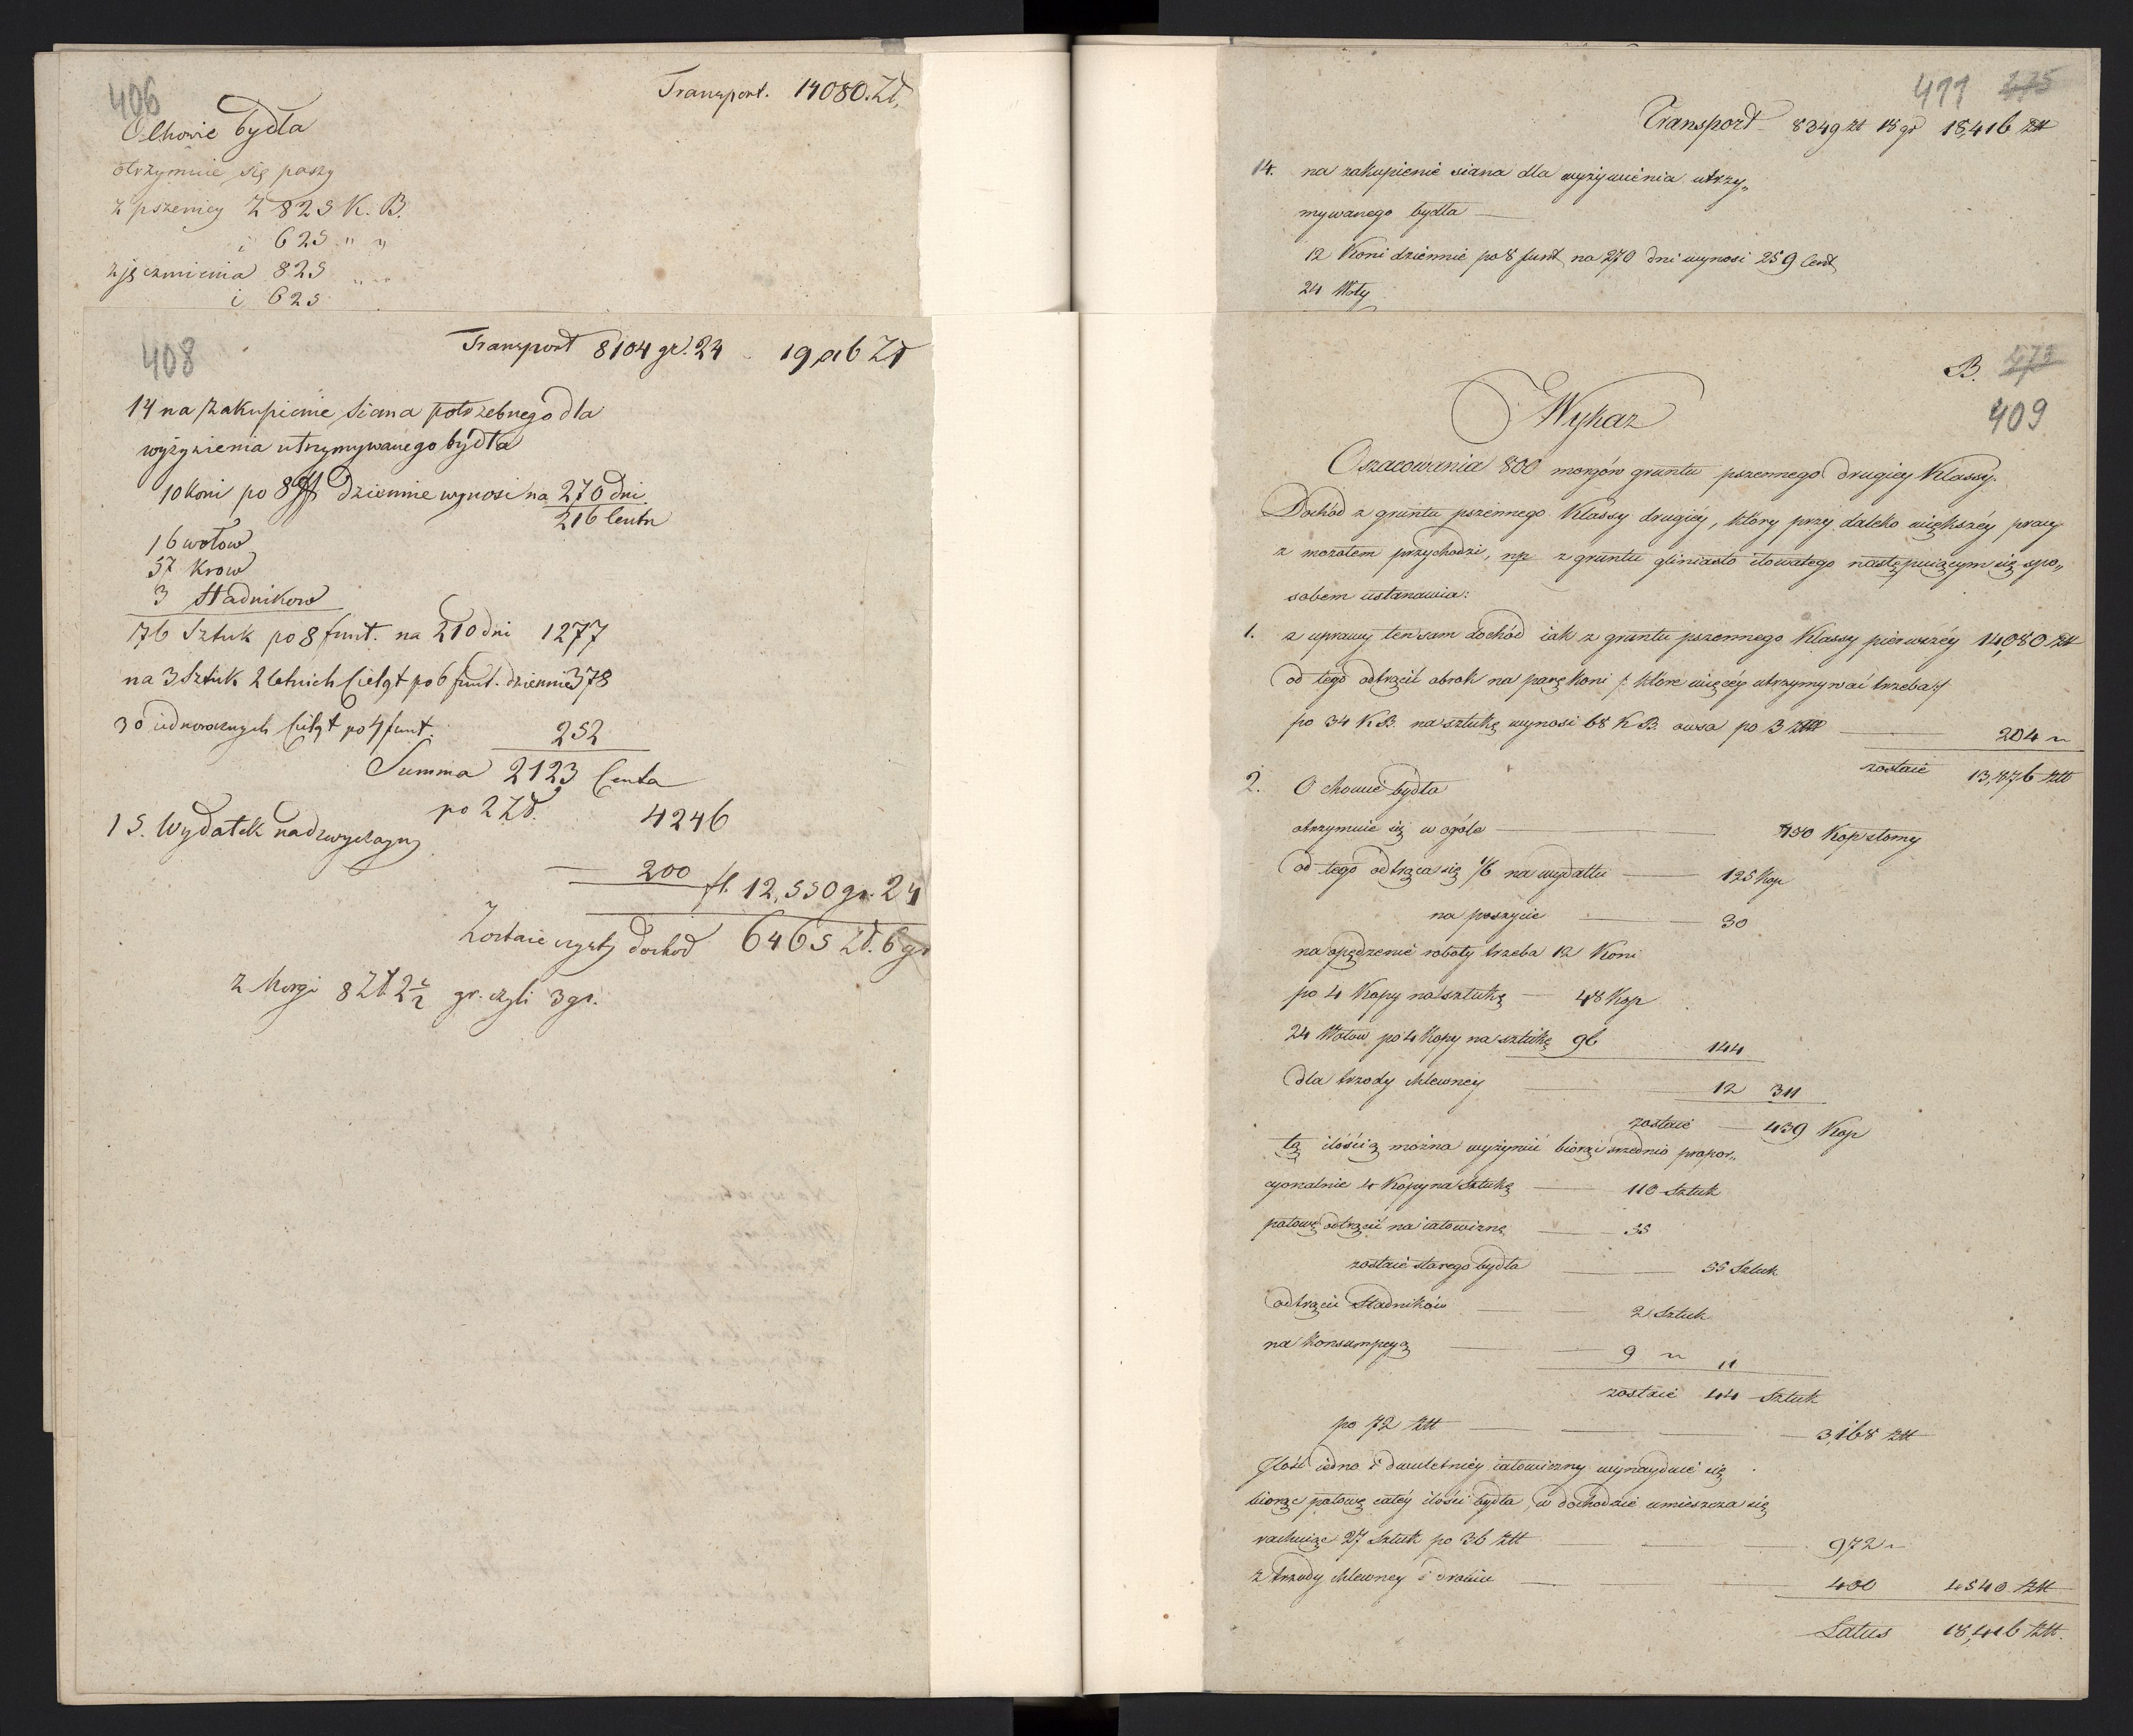 406
Transport. 14080. Zł.
O Chowie bydła
otrzymuie się paszy
z pszenicy Z 825 K. B.
i 625 " "
z jęczmienia 825 " "
i 625
408
Transport 8104 gr. 24 19,016 Zł
14 na zakupienie siana potrzebnego dla
wyżywienia utrzymywanego bydła
10 koni po 8 ℔ dziennie wynosi na 270 dni
216 Centn
16 wołow
57 krow
3 Stadnikow
76 Sztuk po 8 funt. na 210 dni 1277
na 3 Sztuk 2 letnich Cieląt po 6 funt. dziennie 378
30 iednorocznych Cieląt po 4 funt. 252
Summa 2123 Centn
po 2 Zł. 4246
15. Wydatek nadzwyczayny
— 200 fl. 12,550 gr. 24
Zostaie czysty dochod 6465 Zł. 6 gr
z Morgi 8 Zł. 2 1/2 gr. czyli 3 gr.
411 475
Transport 8349 zł 18 gr 18,416 Złł
14. na zakupienie siana dla wyżywienia utrzy„
mywanego bydła —
12 Koni dziennie po 8 funt na 270 dni wynosi 259 Cent
24 Woły
B. 473
409
Wykaz
Oszacowania 800 morgów gruntu pszennego drugiey Klassy.
Dochód z gruntu pszennego Klassy drugiéy, który przy daleko większéy pracy
z mozołem przychodzi, np z gruntu gliniasto iłowatego następuiącym się spo„
sobem ustanawia:
1. z uprawy ten sam dochód iak z gruntu pszennego Klassy pierwszéy 14,080 Złł
od tego odtrącić obrok na parę koni /: które więcéy utrzymywać trzeba :/
po 34 K.B. na sztukę wynosi 68 K.B. owsa po 3 Złł — 204 "
zostaie 13,876 Złł
2. O chowie bydła
otrzymuie się w ogóle — 750 Kop słomy
od tego odtrąca się 1/6 na wydatki — 125 Kop
na poszycie — 30
na opędzenie roboty trzeba 12 Koni
po 4 Kopy na sztukę — 48 Kop
24 Wołow po 4 Kopy na sztukę 96 144
dla trzody chlewney — 12 311
zostaie — 439 Kop
tą ilością można wyżywić biorąc srzednio propor„
cyonalnie 4 Kopy na Sztukę — 110 Sztuk
połowę odtrącić na iałowiznę — 55
zostaie starego bydła — 55 Sztuk
odtrącić Stadników — 2 Sztuk
na konsumpcyą — 9 " 11
zostaie 44 Sztuk
po 72 Złł — 3,168 Złł
Ilość iedno i dwuletniéy iałowizny wynayduie się
biorąc połowę całéy ilości bydła, w dochodzie umieszcza się
rachuiąc 27 Sztuk po 36 Złł — 972 "
z trzody chlewney i drobiu — 400 4540 Złł
Latus 18,416 Złł.